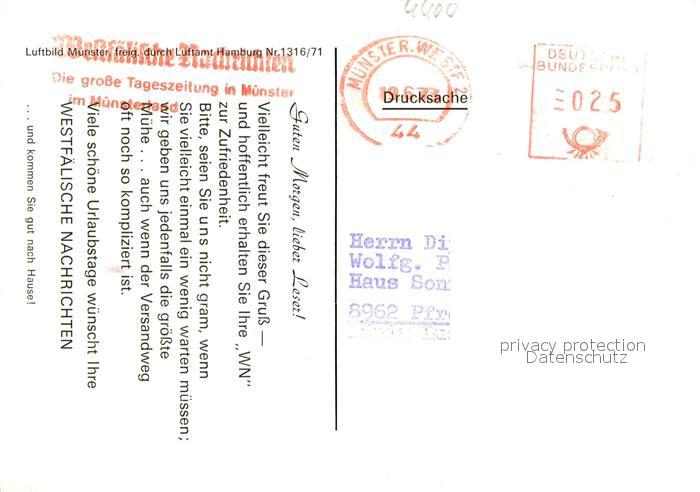 4400
Luftbild Münster, freig. durch Luftamt Hamburg Nr.1316/71
Westfälische Nachrichten
Die große Tageszeitung in Münster
im Münsterland
Guten Morgen, lieber Leser!
Vielleicht freut Sie dieser Gruß —
und hoffentlich erhalten Sie Ihre „WN“
zur Zufriedenheit.
Bitte, seien Sie uns nicht gram, wenn
Sie vielleicht einmal ein wenig warten müssen;
wir geben uns jedenfalls die größte
Mühe . . . auch wenn der Versandweg
oft noch so kompliziert ist.
Viele schöne Urlaubstage wünscht Ihre
WESTFÄLISCHE NACHRICHTEN
. . . und kommen Sie gut nach Hause!
MÜNSTER, WESTF 2
44
Drucksache
DEUTSCHE
BUNDESPOST
025
Herrn Di
Wolfg. P
Haus Son
8962 Pfr
privacy protection
Datenschutz